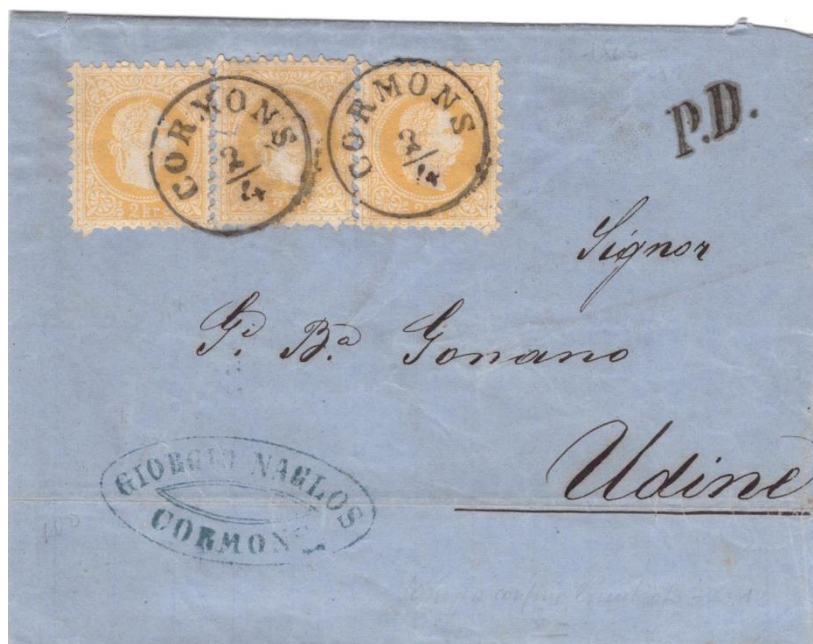 2 Kr.
CORMONS
2/4
CORMONS
2/4
P.D.
Signor
Gi. Ba. Gonano
Udine
GIORGIO NAGLOS
CORMONS
100